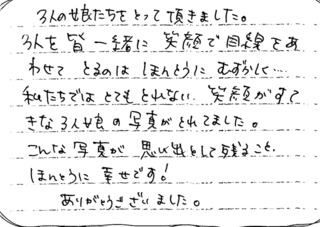 3人の娘たちをとって頂きました。
3人を皆一緒に笑顔で目線をあ
わせてとるのはほんとうにむずかしく…
私たちではとてもとれない笑顔がすて
きな3人娘の写真がとれてました。
こんな写真が思い出として残ること、
ほんとうに幸せです!
ありがとうございました。